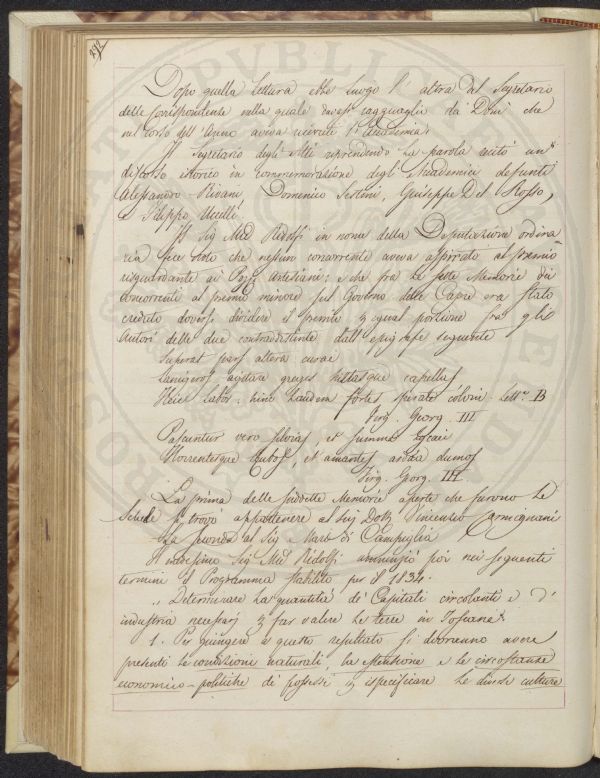 292
Dopo quella lettura ebbe luogo l'altra del Segretario
delle Corrispondenze nella quale davasi ragguaglio dei Doni che
nel corso dell'Anno aveva ricevuti l'Accademia.
Il Segretario degli Atti riprendendo la parola recitò un
discorso istorico in commemorazione degli Accademici defunti
Alessandro Rivani Domenico Sestini, Giuseppe Del Rosso,
e Filippo Ucelli.
Il Sig. Mse Ridolfi in nome della Deputazione ordina
ria fece noto che nessun concorrente aveva aspirato al premio
risguardante ai Pozzi Artesiani; e che fra le sette Memorie dei
concorrenti al premio minore sul Governo delle Capre era stato
creduto doversi dividere il premio per egual porzione fra gli
Autori delle due contraddistinte dall'epigrafe seguente
Superat pars altera curae
Lanigeros agitare greges hirtasque capellas
Heic Labor; hinc Laudem fortes sperate coloni. Lett.a B
Virg. Georg. III
Pascuntur vero silvas, et summa Lycaei
Horrentesque rubos, et amantes ardua dumos
Virg. Georg. III
La prima delle suddette Memorie aperte che furono le
Schede si trovò appartenere al Sig Dott. Vincenzo Carmignani
La seconda al Sig Marb di Campiglia
Il medesimo Sig. Mse Ridolfi annunziò poi nei seguenti
termini il Programma stabilito per il 1834.
"Determinare la quantità de' Capitali circolanti e d'
industria necessarj per far valere le terre in Toscana".
1. Per giungere a questo resultato si dovranno avere
presenti le condizioni naturali, la estensione e le circostanze
economico-politiche dei possessi per ispecificare le diverse culture